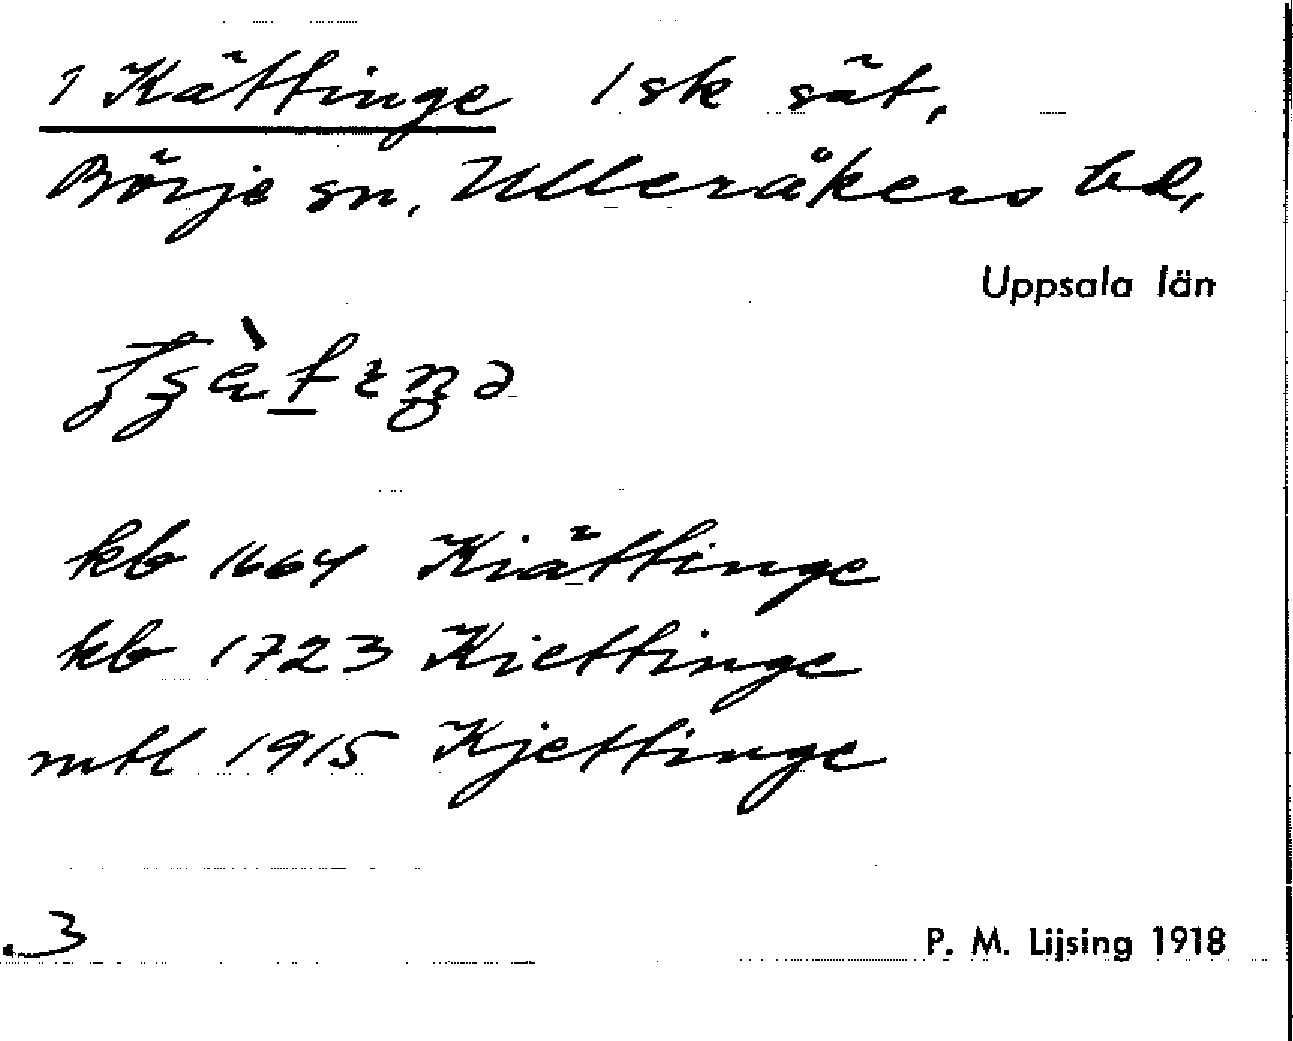 1 Kättinge 1 sk sät,
Börje sn, Ulleråkers hd,
Uppsala län
kb 1664 Kiättinge
kb 1723 Kiettinge
mtl 1915 Kjettinge
.3
P. M. Lijsing 1918